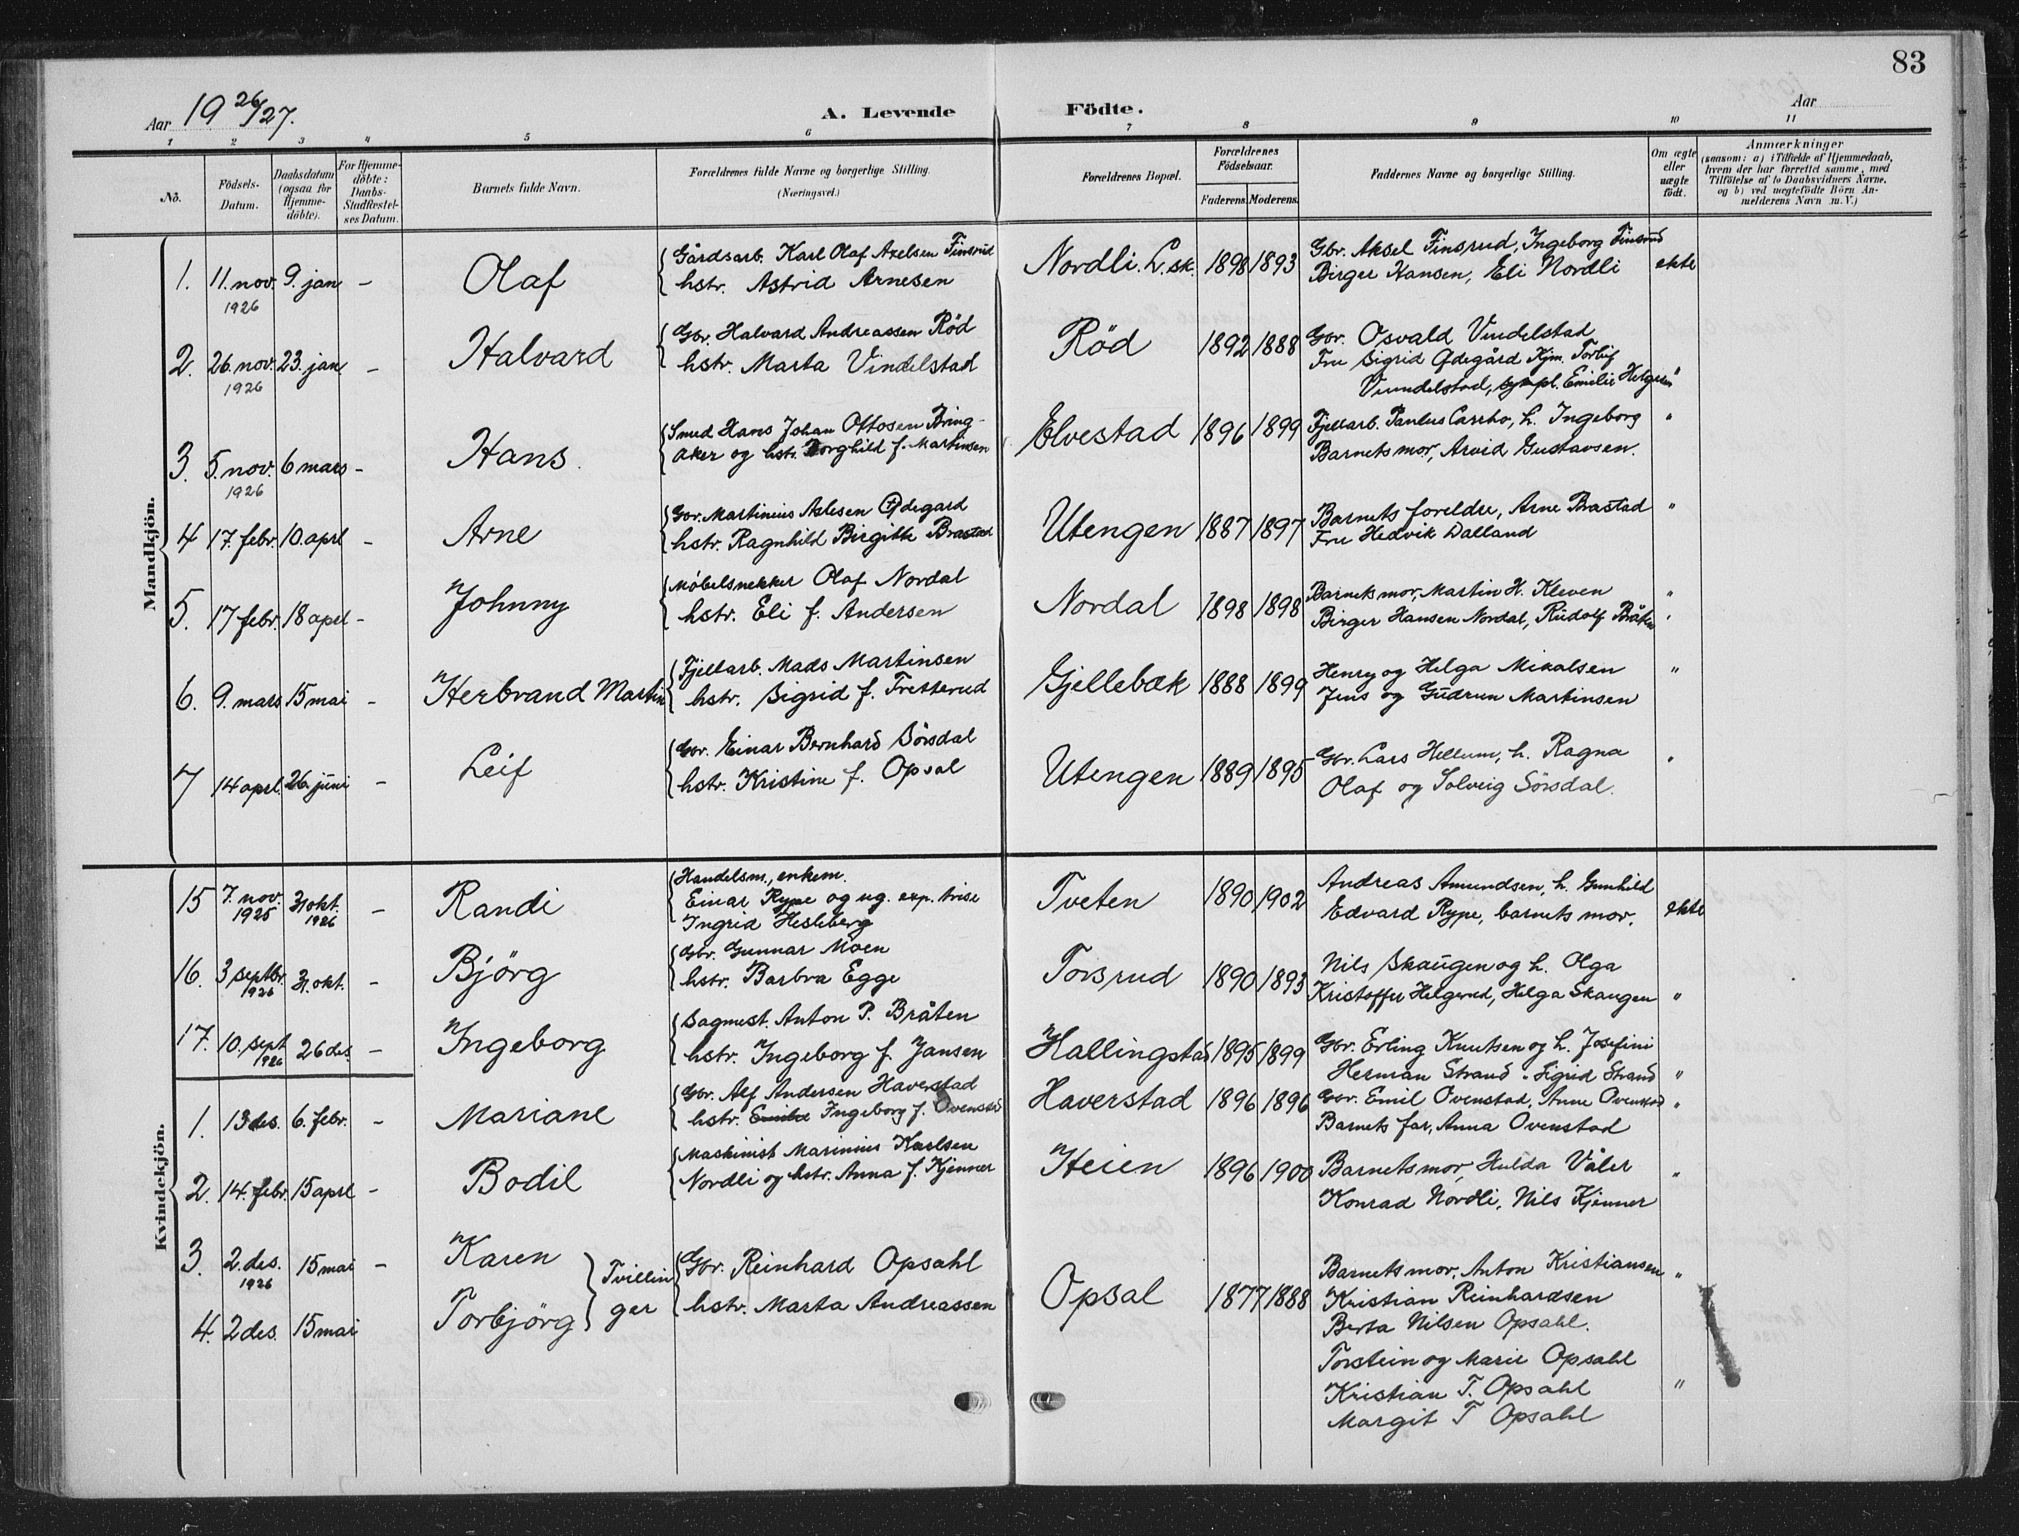 83
Aar 19 26/27.
A. Levende Födte.
Aar
1 2 3 4 5 6 7 8 9 10 11
No. Födsels-Datum. Daabsdatum (ogsaa for Hjemmedöbte). For Hjemmedöbte: Daabs-Stadfæstelses Datum. Barnets fulde Navn. Forældrenes fulde Navne og borgerlige Stilling. (Næringsvei.) Forældrenes Bopæl. Forældrenes Födselsaar. Faderens. Moderens. Faddernes Navne og borgerlige Stilling. Om ægte eller uægte födt. Anmærkninger (saasom: a) i Tilfælde af Hjemmedaab, hvem der har forrettet samme, med Tilföielse af to Daabsvidners Navne, og b) ved uægtefödte Börn Anmelderens Navn m. V.)
Mandkjön.
1. 11. nov. 1926 9. jan - Olaf Gårdsarb. Karl Olaf Axelsen Finsrud
hstr. Astrid Arnesen Nordli. L.sk. 1898 1893 Gbr. Aksel Finsrud, Ingeborg Finsrud
Birger Hansen, Eli Nordli ekte
2. 26. nov. 1926 23. jan - Halvard Gbr. Halvard Andreassen Röd
hstr. Marta Vindelstad Röd 1892 1888 Gbr. Osvald Vindelstad
Fru Sigrid Ødegård Kjm. Torleif
Vindelstad, Emilie Helgesen "
3. 5. nov. 1926 6 mars - Hans. Smed Hans Johan Ottosen Bring-
aker og hstr. Borghild f. Martinsen Elvestad 1896 1899 Fjellarb. Paulus Carrho, h. Ingeborg "
Barnets mor, Arvid Gustavsen.
4 17. febr. 10. aprl - Arne Gbr. Martinius Aslesen Ødegard
hstr. Ragnhild Birgitte Brastad Utengen 1887 1897 Barnets foreldre, Arne Brastad "
Fru Hedvik Dalland
5. 17 febr. 18 aprl - Johnny Møbelsnekker Olaf Nordal
hstr. Eli f. Andersen Nordal 1898 1898 Barnets mor, Martin H. Kleven "
Birger Hansen Nordal, Rudolf Bråten "
6. 9. mars 15 mai - Herbrand Martin Fjellarb. Mads Martinsen
hstr. Sigrid f. Fretterud Gjellebæk 1888 1899 Henry og Helga Mikalsen "
Jens og Gudrun Martinsen
7 14 aprl. 26. juni - Leif Gbr. Einar Bernhard Sörsdal
hstr. Kristine f. Opsal Utengen 1889 1895 Gbr. Lars Hellum, h. Ragna "
Olaf og Solveig Sörsdal.
Kvindekjön.
15 7. nov. 1925 31 okt. 1926 - Randi Handelsm., enkem.
Einar Rype og ug. exp. trise
Ingrid Hesleberg Tveten 1890 1902 Andreas Amundsen, h. Gunhild
Edvard Rype, barnets mor. ekte
16. 3 septbr. 1926 31. okt. - Björg Gbr. Gunnar Moen
hstr. Barbra Egge Torsrud 1890 1893 Nils Skaugen og h. Olga
Kristoffer Helgerud, Helga Skaugen "
17. 10. sept 1926 26 des. - Ingeborg Sagmest. Anton P. Bråten
hstr. Ingeborg f. Jansen Hallingstad 1895 1899 Gbr. Erling Knutsen og h. Josefine
Herman Strand - Sigrid Strand "
1. 13 des. 6. febr. - Mariane Gbr. Alf Andersen Haverstad
hstr. Ingeborg f. Ovenstad Haverstad 1896 1896 Gbr. Emil Ovenstad, Anne Ovenstad "
Barnets far, Anna Ovenstad
2. 14. febr. 15 aprl - Bodil Maskinist Marinius Karlsen
Nordli og hstr. Anna f. Kjenner Heien 1896 1900 Barnets mor, Hulda Våler "
Konrad Nordli, Nils Kjenner
3. 2. des. 1926 15 mai - Karen Tvillin
4. 2 des. 15 mai Torbjörg ger
Gbr. Reinhard Opsahl
hstr. Marta Andreassen Opsal 1877 1888 Barnets mor, Anton Kristiansen "
Kristian Reinhardsen
Berta Nilsen Opsahl.
Torstein og Marie Opsahl
Kristian T. Opsahl "
Margit T Opsahl